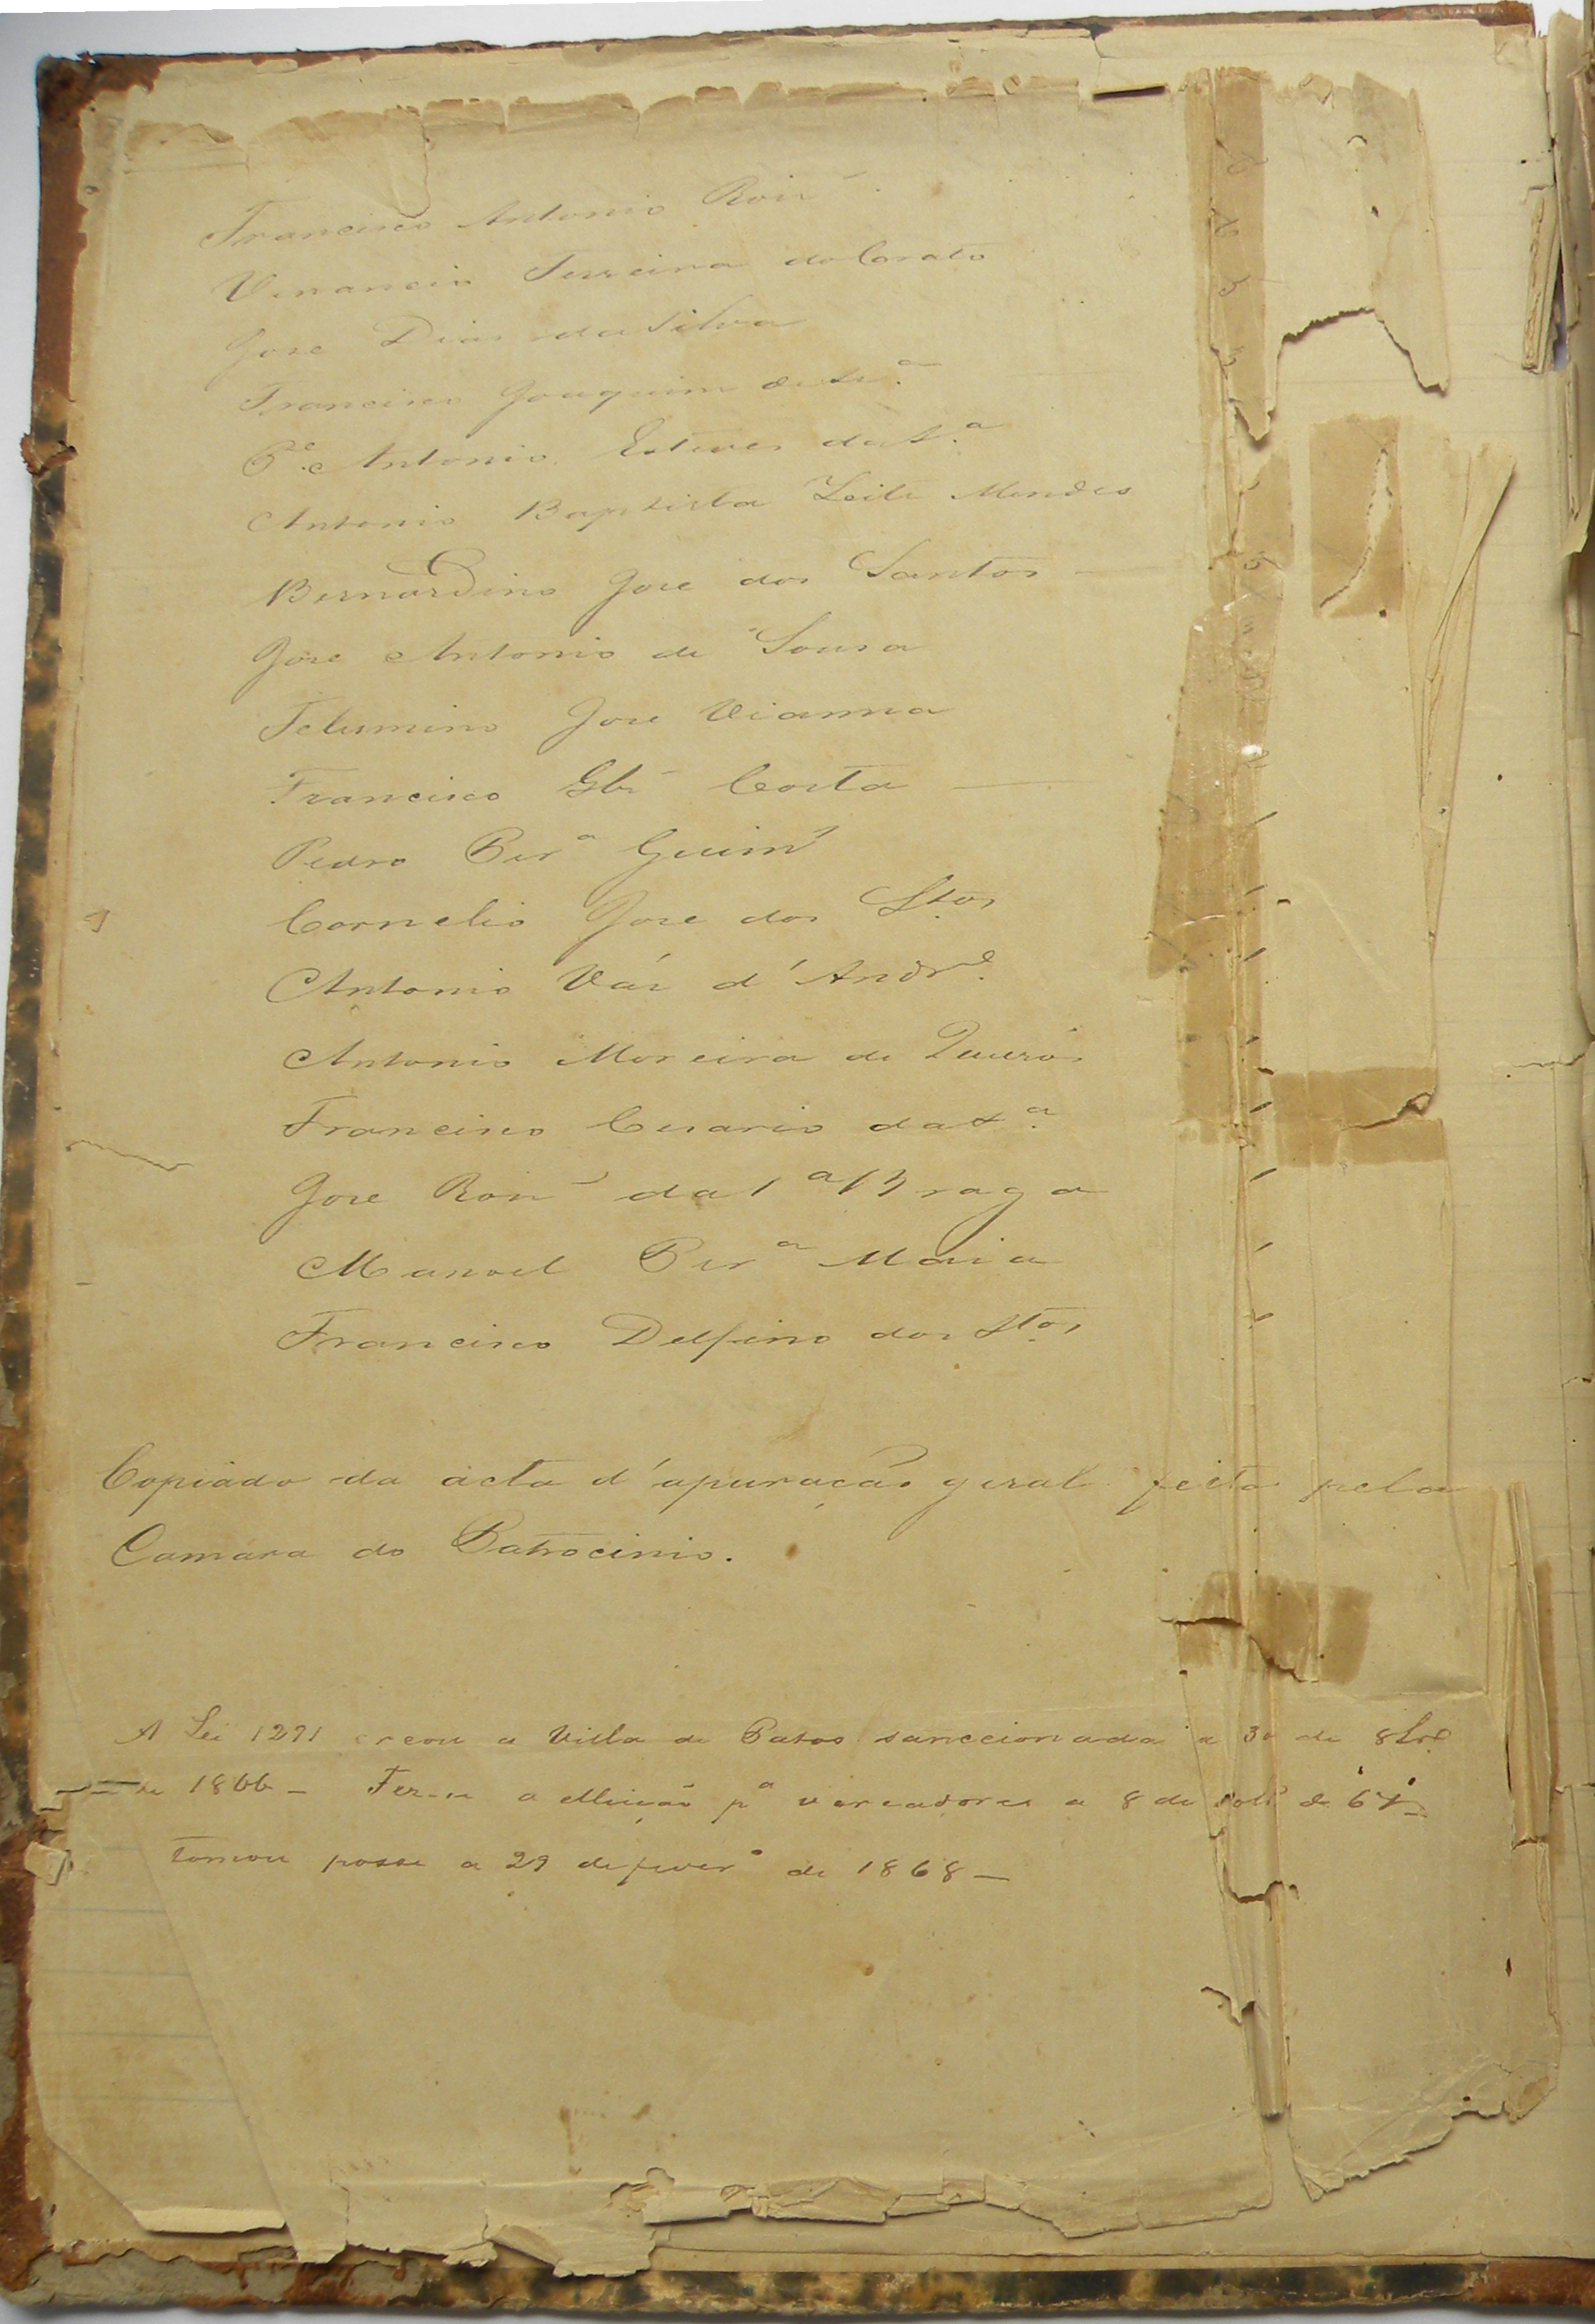 Francisco Antonio Roiz
Venancio Ferreira do Corato
Jose Dias da Silva
Francisco Joaquim de
Pe. Antonio Esteves da S.a
Antonio Baptista Leite Mendes
Bernardino Jose dos Santos
Jose Antonio de Sousa
Felumino Jose Vianna
Francisco Glz Costa
Pedro Per.a Guim
Cornelio Jose dos Stos
Antonio Váz d'Andr.e
Antonio Moreira de Queirós
Francisco Cesario da S.a
Jose Roiz da S.a Braga
Manoel Per.a Maia
Francisco Delfino dos Stos
Copiado da acta d'apuração geral feita pela
Camara do Patrocinio.
A Lei 1291 creou a Villa de Patos sanccionada a 30 de 8bro
de 1866 – Fez-se a elleição p.a vereadores a 8 de de 67
tomou posse a 29 de fever.o de 1868 –